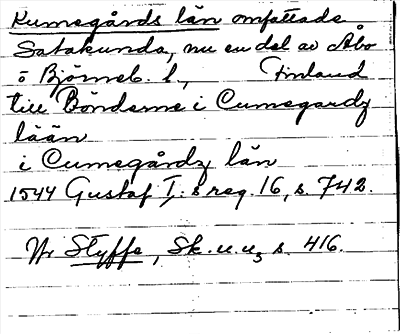 Kumogårds län omfattade
Satakunda, nu en del av Åbo
o Björneb. l, Finland
till Bönderne i Cumegardz
lään
i Cumegårdz län
1544 Gustaf I:s reg. 16, s. 742.
Jfr Styffe, Sk. u. u, s. 416.